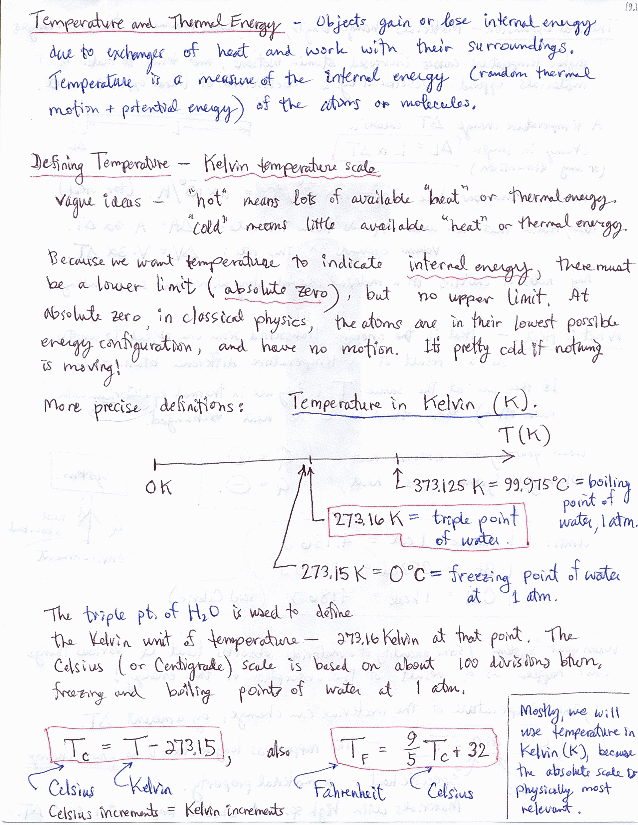 19.1
Temperature and Thermal Energy - Objects gain or lose internal energy
due to exchanges of heat and work with their surroundings.
Temperature is a measure of the internal energy (random thermal
motion + potential energy) of the atoms or molecules.
Defining Temperature - Kelvin temperature scale
Vague ideas - "hot" means lots of available "heat" or thermal energy.
"cold" means little available "heat" or thermal energy.
Because we want temperature to indicate internal energy, there must
be a lower limit (absolute zero), but no upper limit. At
absolute zero, in classical physics, the atoms are in their lowest possible
energy configuration, and have no motion. It's pretty cold if nothing
is moving!
More precise definitions: Temperature in Kelvin (K).
T(K)
0 K
373.125 K = 99.975°C = boiling
point of
water, 1 atm.
273.16 K = triple point
of water.
273.15 K = 0°C = freezing point of water
at 1 atm.
The triple pt. of H2O is used to define
the Kelvin unit of temperature — 273.16 Kelvin at that point. The
Celsius (or Centigrade) scale is based on about 100 divisions btwn.
freezing and boiling points of water at 1 atm.
Tc = T - 273.15, also TF = 9/5 Tc + 32
Celsius Kelvin Fahrenheit Celsius
Celsius increments = Kelvin increments
Mostly, we will
use temperature in
Kelvin (K), because
the absolute scale is
physically most
relevant.